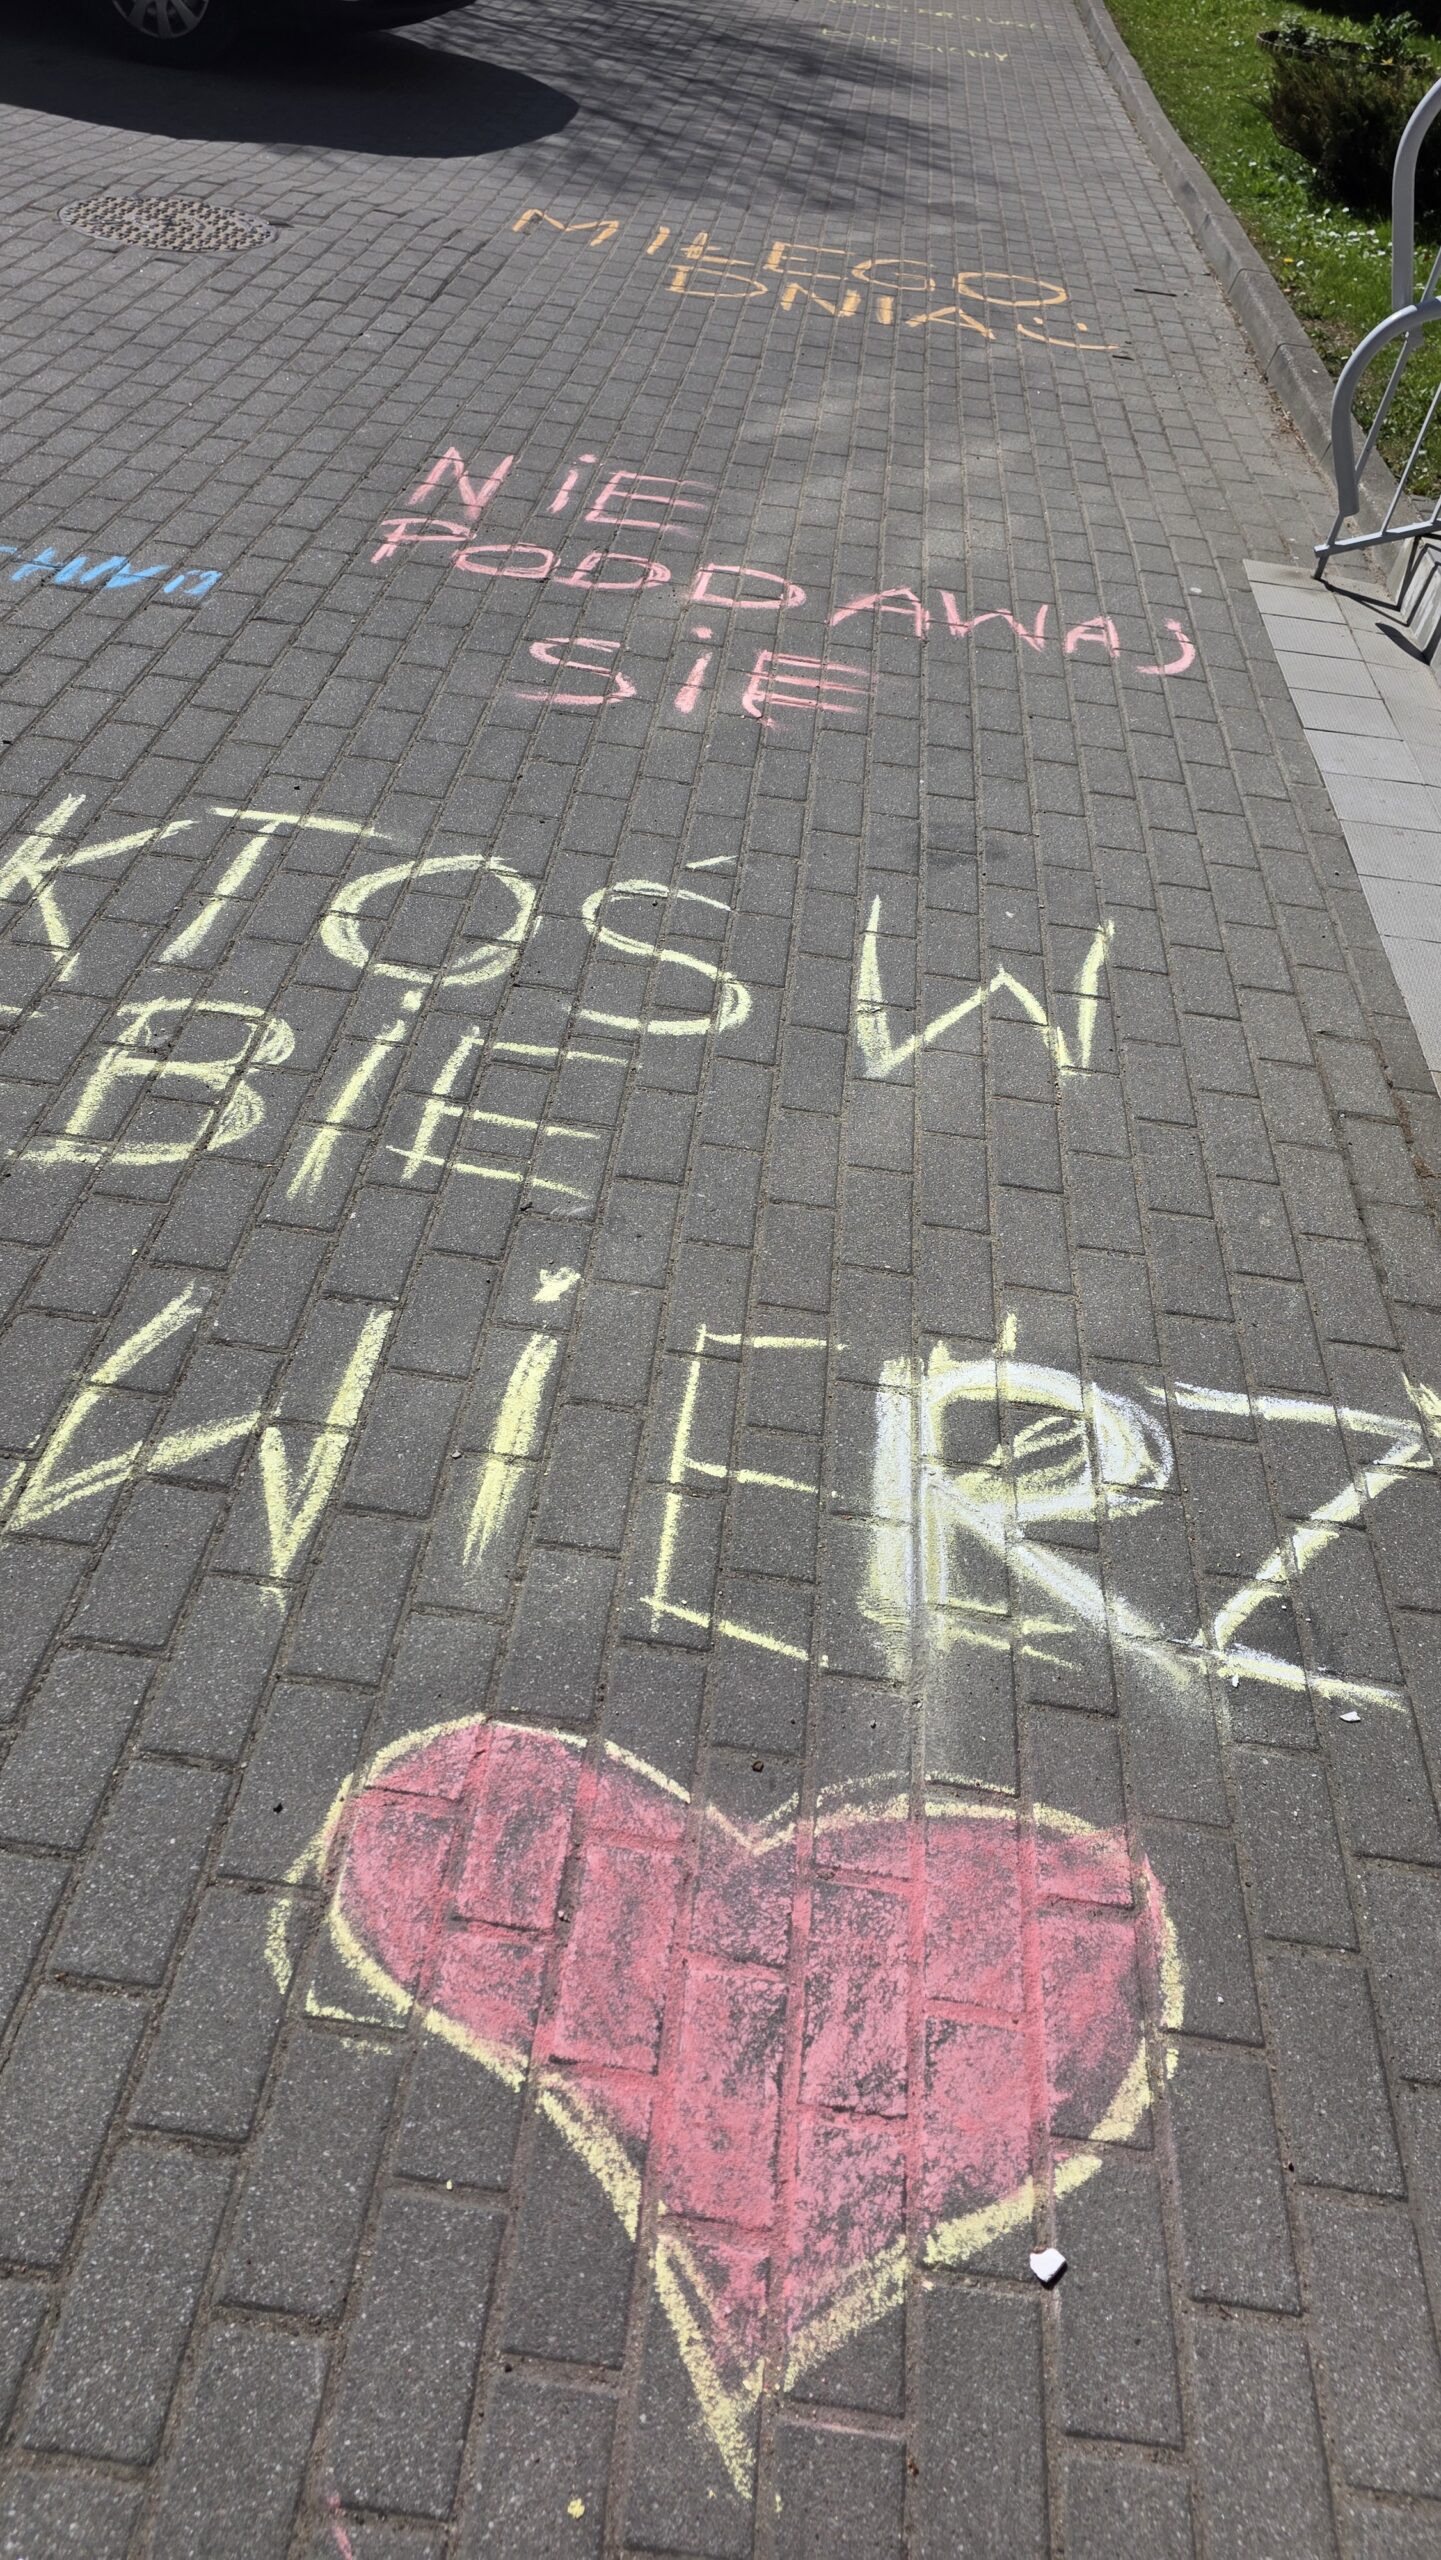 MIŁEGO
DNIA
NiE
PODDAWAJ
SiĘ
KTOŚ W
BiE
WiERZ